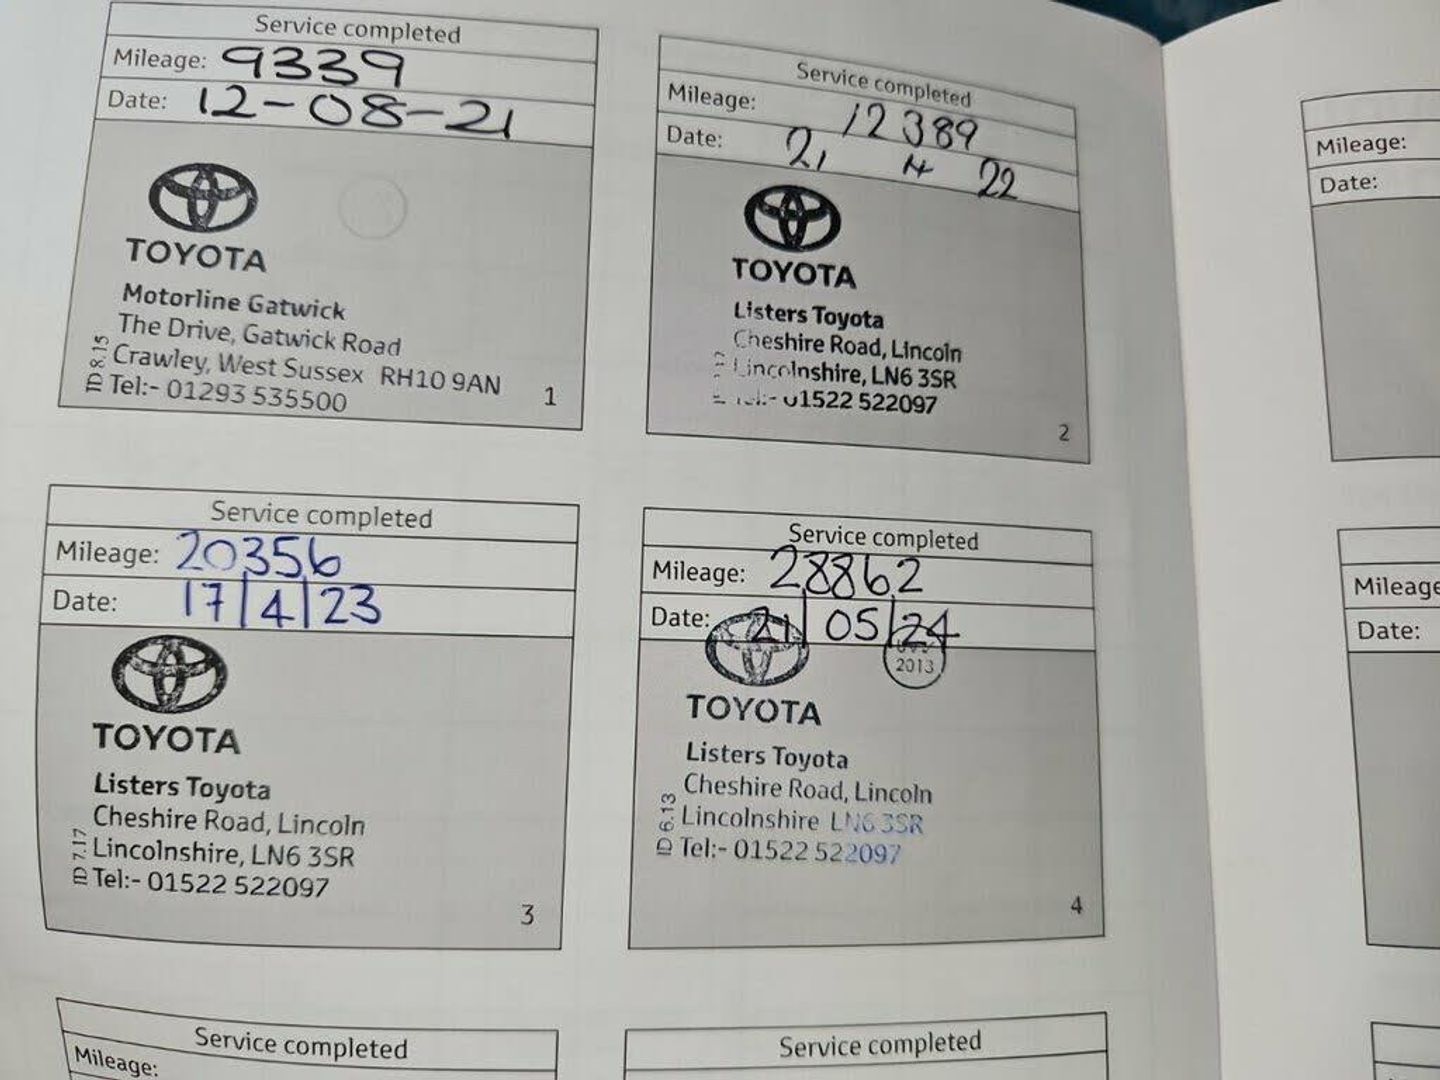 Service completed
Mileage: 9339
Date: 12-08-21
TOYOTA
Motorline Gatwick
The Drive, Gatwick Road
Crawley, West Sussex RH10 9AN
Tel:- 01293 535500
ID 8.15
1
Service completed
Mileage: 12389
Date: 21 4 22
TOYOTA
Listers Toyota
Cheshire Road, Lincoln
Lincolnshire, LN6 3SR
Tel:- 01522 522097
2
Service completed
Mileage: 20356
Date: 17/4/23
TOYOTA
Listers Toyota
Cheshire Road, Lincoln
Lincolnshire, LN6 3SR
Tel:- 01522 522097
ID 7.17
3
Service completed
Mileage: 28862
Date: 21/05/24
2013
TOYOTA
Listers Toyota
Cheshire Road, Lincoln
Lincolnshire LN6 3SR
Tel:- 01522 522097
ID 6.13
4
Service completed
Mileage:
Service completed
Mileage:
Date:
Mileage
Date: